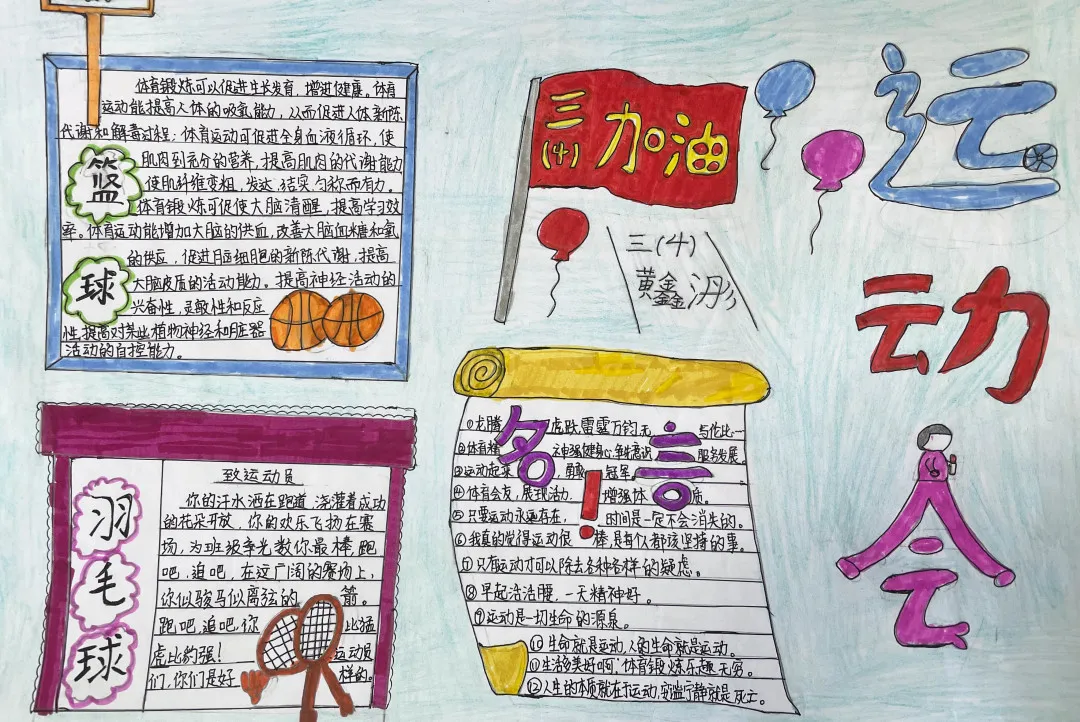 运
动
会
三
(4)
加油
三(4)
黄鑫浵
篮
球
体育锻炼可以促进生长发育,增进健康,体育
运动能提高人体的吸氧能力,从而促进人体新陈
代谢和解毒过程;体育运动可促进全身血液循环,使
肌肉到充分的营养,提高肌肉的代谢能力
使肌纤维变粗,发达,结实,匀称而有力。
体育锻炼可促使大脑清醒,提高学习效
率。体育运动能增加大脑的供血,改善大脑血糖和氧
的供应,促进脑细胞的新陈代谢,提高
大脑皮质的活动能力,提高神经活动的
兴奋性,灵敏性和反应
性,提高对某些植物神经和脏器
活动的自控能力。
羽
毛
球
致运动员
你的汗水洒在跑道,浇灌着成功
的花朵开放,你的欢乐飞扬在赛
场,为班级争光数你最棒,跑
吧,追吧,在这广阔的赛场上,
你似骏马似离弦的箭。
跑吧,追吧,你比猛
虎比豹强!运动员
们,你们是好样的。
名言!
①龙腾虎跃,雷霆万钧,无与伦比…
②体育精神强健身心,争先意识服务发展。
③运动起来,勇夺冠军
④体育会友,展现活力,增强体质。
⑤只要运动永远存在,时间是一定不会消失的。
⑥我真的觉得运动很棒,是每个人都该坚持的事。
⑦只有运动才可以除去各种各样的疑虑。
⑧早起活活腰,一天精神好。
⑨运动是一切生命的源泉。
⑩生命就是运动,人的生命就是运动。
⑪生活多美好啊,体育锻炼乐趣无穷。
⑫人生的本质就在于运动,安谧宁静就是死亡。